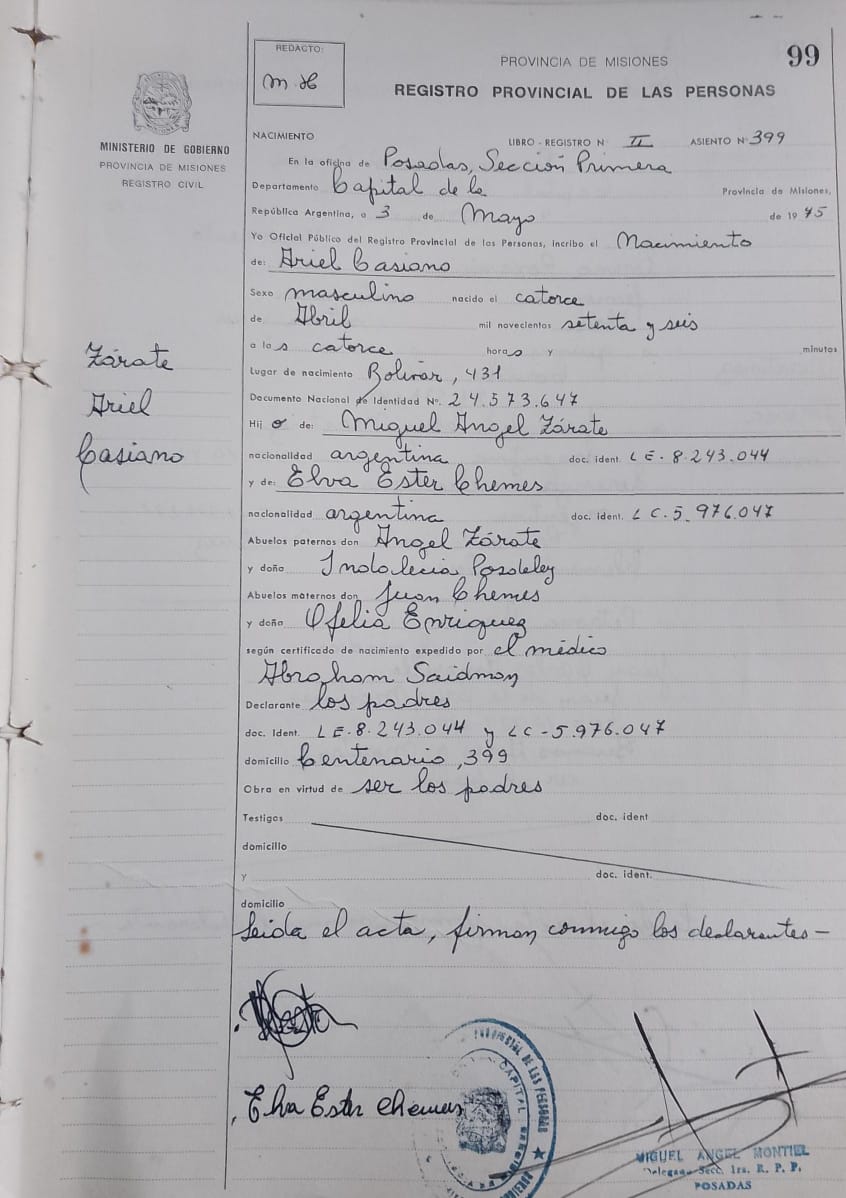 99
REDACTO:
PROVINCIA DE MISIONES
REGISTRO PROVINCIAL DE LAS PERSONAS
MINISTERIO DE GOBIERNO
PROVINCIA DE MISIONES
REGISTRO CIVIL
NACIMIENTO LIBRO - REGISTRO N II ASIENTO Nº 399
En la oficina de Posadas, Sección Primera
Departamento Capital de la Provincia de Misiones,
República Argentina, a 3 de Mayo de 19
Yo Oficial Público del Registro Provincial de las Personas, incribo el Nacimiento
de: Ariel Casiano
Sexo masculino nacido el catorce
de Abril mil novecientos setenta y seis
a las catorce horas y minutos
Zárate
Ariel
Casiano
Lugar de nacimiento Bolívar, 431
Documento Nacional de Identidad Nº. 24.573.647
Hijo de: Miguel Angel Zárate
nacionalidad argentina doc. ident. LE-8.243.044
y de: Elva Ester Chemes
nacionalidad argentina doc. ident. LC.5.976.047
Abuelos paternos don Angel Zárate
y doña Indalecia
Abuelos maternos don Juan Chemes
y doña Ofelia Enriquez
según certificado de nacimiento expedido por el médico
Abraham Saidman
Declarante los padres
doc. Ident. LE-8.243.044 y LC-5.976.047
domicilio Centenario, 399
Obra en virtud de ser los padres
Testigos doc. ident
domicilio
y doc. ident.
domicilio
Leida el acta, firman conmigo los declarantes-
Elva Ester Chemes
PROVINCIAL DE LAS PERSONAS
CAPITAL
MIGUEL ANGEL MONTIEL
Delegado Secc. 1ra. R. P. P.
POSADAS